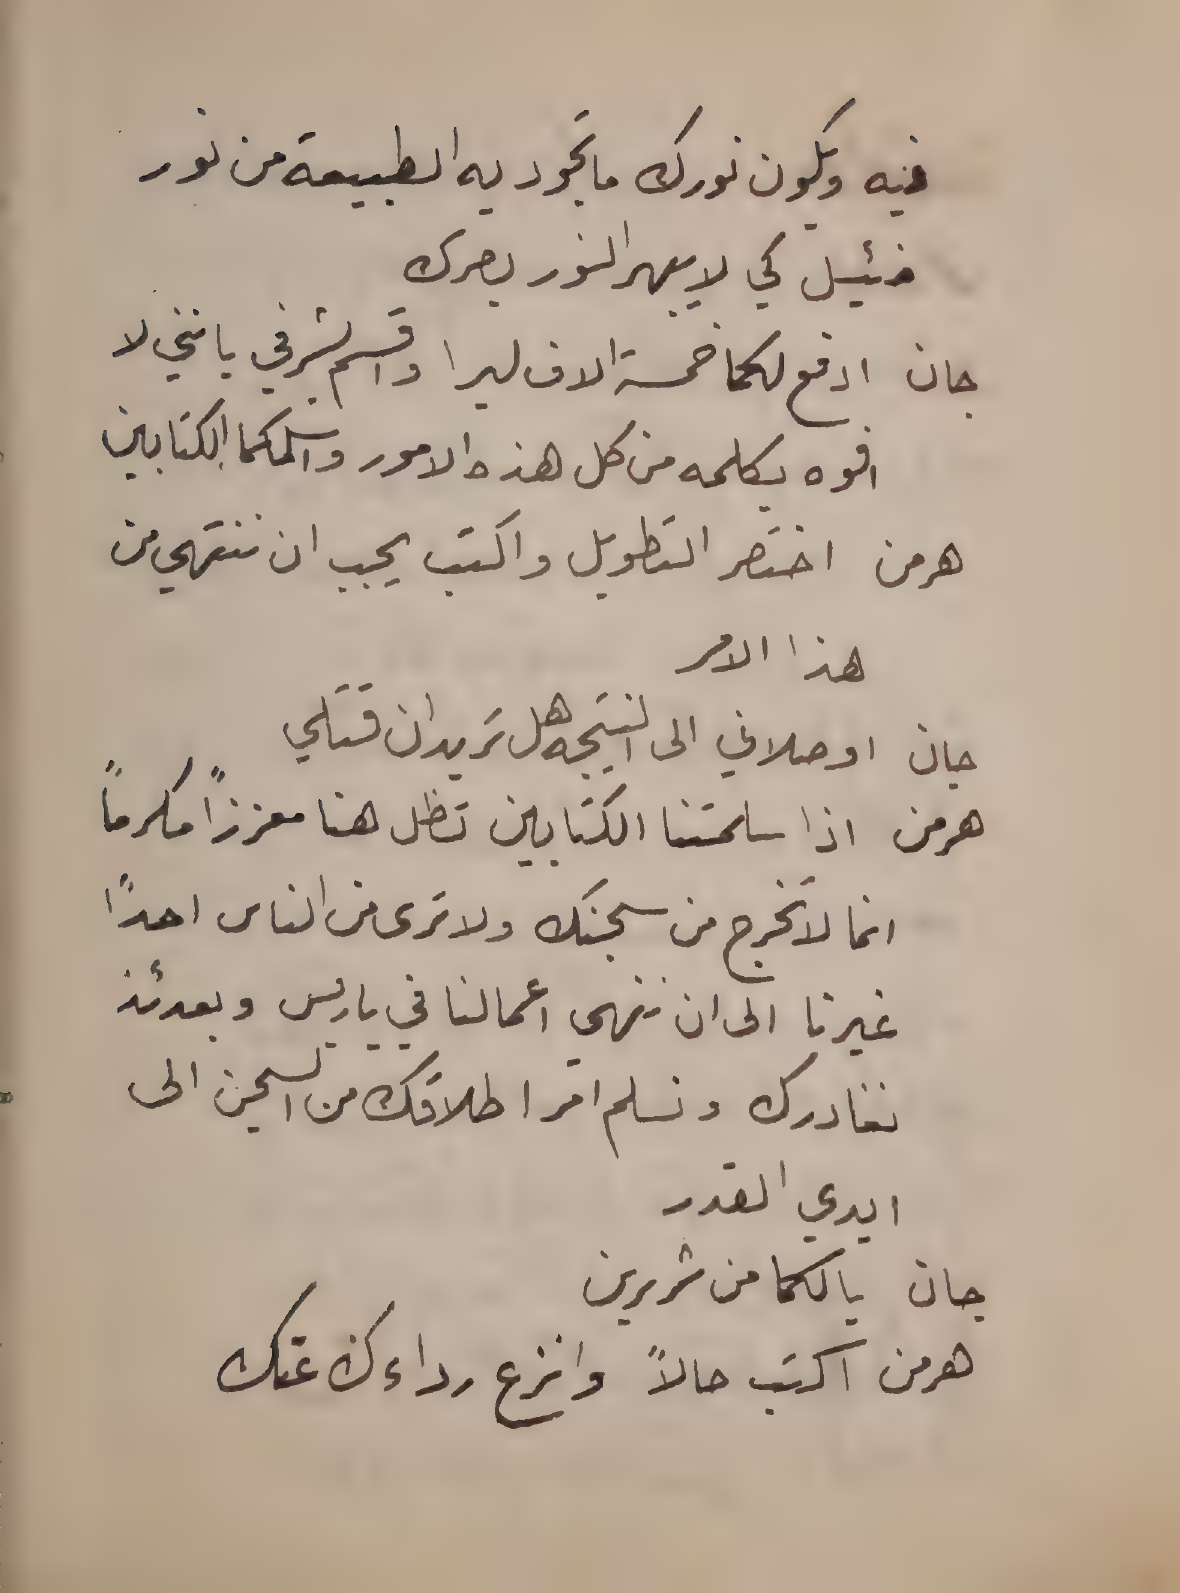 فيه ويكون نورك ما تجود به الطبيعة من نور
ضئيل كي لا يبهر النور بصرك
جان ادفع لكما خمسة الاف ليرا واقسم بشرفي بانني لا
افوه بكلمه من كل هذه الامور واسلمكما الكتابين
هرمن اختصر التطويل واكتب يجب ان ننتهي من
هذا الامر
جان اوصلاني الى النتيجه هل تريدان قتلي
هرمن اذا سلمتنا الكتابين تظل هنا معززاً مكرماً
انما لا تخرج من سجنك ولا ترى من الناس احداً
غيرنا الى ان ننهي اعمالنا في باريس وبعدئذ
نغادرك ونسلم امر اطلاقك من السجن الى
ايدي القدر
جان يالكما من شريرين
هرمن اكتب حالاً وانزع رداءك عنك